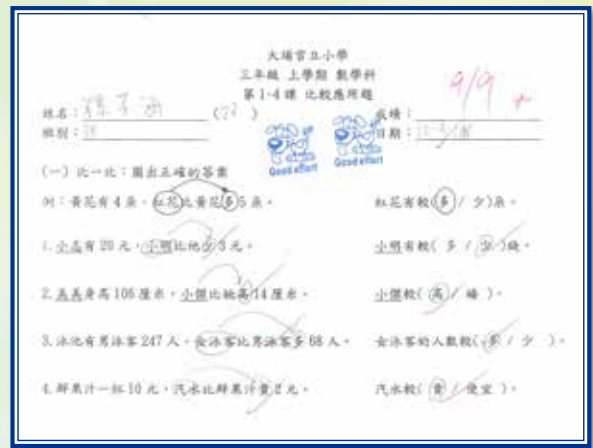 大埔官立小學
三年級 上學期 數學科
第 1-4 課 比較應用題
9/9
姓名：
(22)
成績：
班別：
日期：
Good effort
Good effort
(一) 比一比：圈出正確的答案
例：黃花有 4 朵，紅花比黃花多 5 朵。 紅花有較( 多 / 少 )朵。
1. 小志有 20 元，小明比他少 3 元。 小明有較( 多 / 少 )錢。
2. 美美身高 106 厘米，小傑比她高 14 厘米。 小傑較( 高 / 矮 )。
3. 泳池有男泳客 247 人，女泳客比男泳客多 68 人。 女泳客的人數較( 多 / 少 )。
4. 鮮果汁一杯 10 元，汽水比鮮果汁貴 2 元。 汽水較( 貴 / 便宜 )。